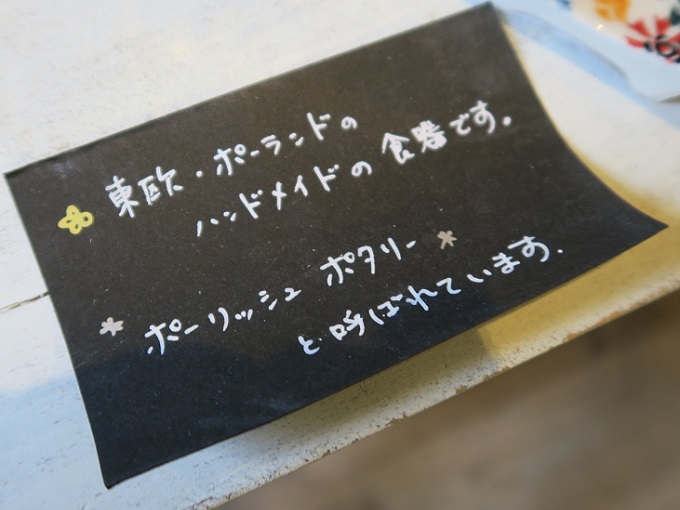 東欧・ポーランドの
ハンドメイドの食器です。
ポーリッシュ ポタリー
と呼ばれています.